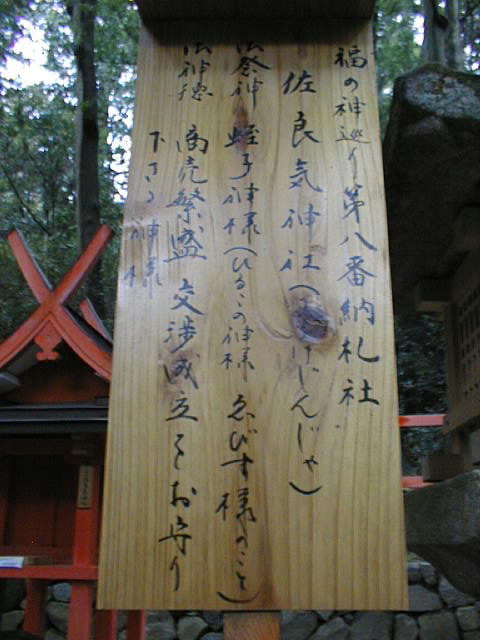 福の神巡り第八番納札社
佐良気神社（さらけじんじゃ）
御祭神 蛭子神様（ひるこの神様 ゑびす様のこと）
御神徳 商売繁盛 交渉成立をお守り
下さる神様